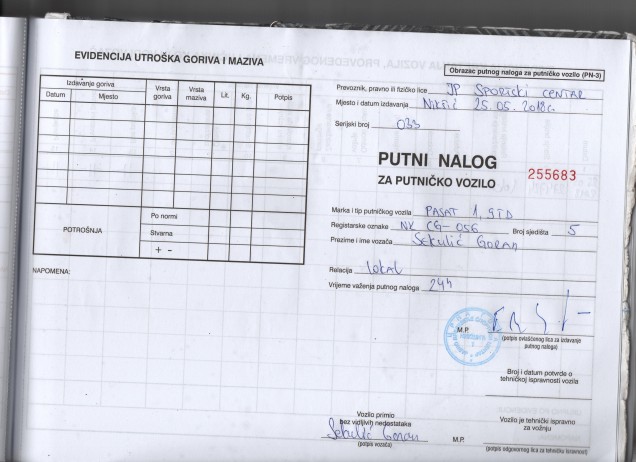 EVIDENCIJA UTROŠKA GORIVA I MAZIVA
Izdavanje goriva
Datum Mjesto Vrsta goriva Vrsta maziva Lit. Kg. Potpis
POTROŠNJA
Po normi
Stvarna
+ -
NAPOMENA:
Obrazac putnog naloga za putničko vozilo (PN-3)
Prevoznik, pravno ili fizičko lice JP SPORTSKI CENTAR
Mjesto i datum izdavanja NIKŠIĆ 25.05.2018G.
Serijski broj 033
PUTNI NALOG
ZA PUTNIČKO VOZILO
255683
Marka i tip putničkog vozila PASAT 1,9TD
Registarske oznake NK CG-056 Broj sjedišta 5
Prezime i ime vozača Sekulić Goran
Relacija lokal
Vrijeme važenja putnog naloga 24h
M.P.
(potpis ovlašćenog lica za izdavanje
putnog naloga)
Broj i datum potvrde o
tehničkoj ispravnosti vozila
Vozilo primio
bez vidljivih nedostataka
Sekulić Goran
(potpis vozača)
M.P.
Vozilo je tehnički ispravno
za vožnju
(potpis odgovornog lica za tehničku ispravnost)